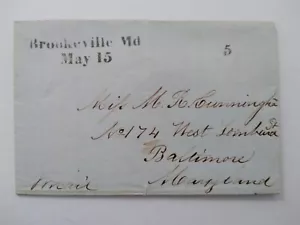 Brookeville Md
May 15
5
Miss M. R. Cunningha
No 174 West Lombard St
Baltimore
Maryland